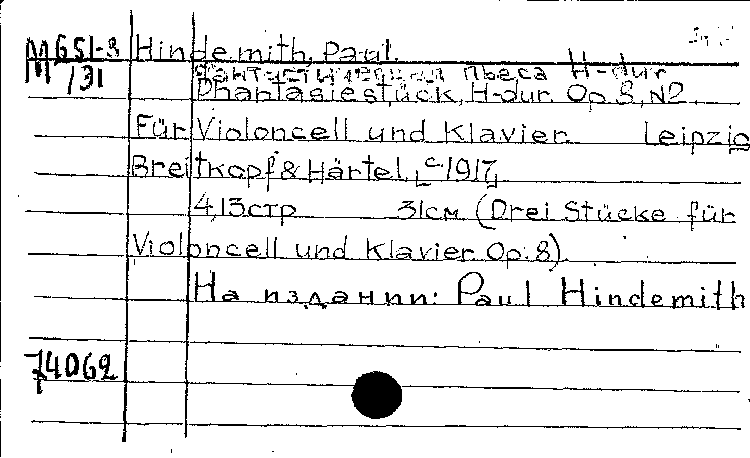 М651-8 Hindemith, Paul.
М/131 Фантастическая пьеса H-dur
Phantasiestück, H-dur. Op. 8, N2.
Für Violoncell und Klavier. Leipzig
Breitkopf & Härtel, [c 1917]
4,13стр 31см (Drei Stücke für
Violoncell und Klavier Op. 8)
На издании: Paul Hindemith
74062